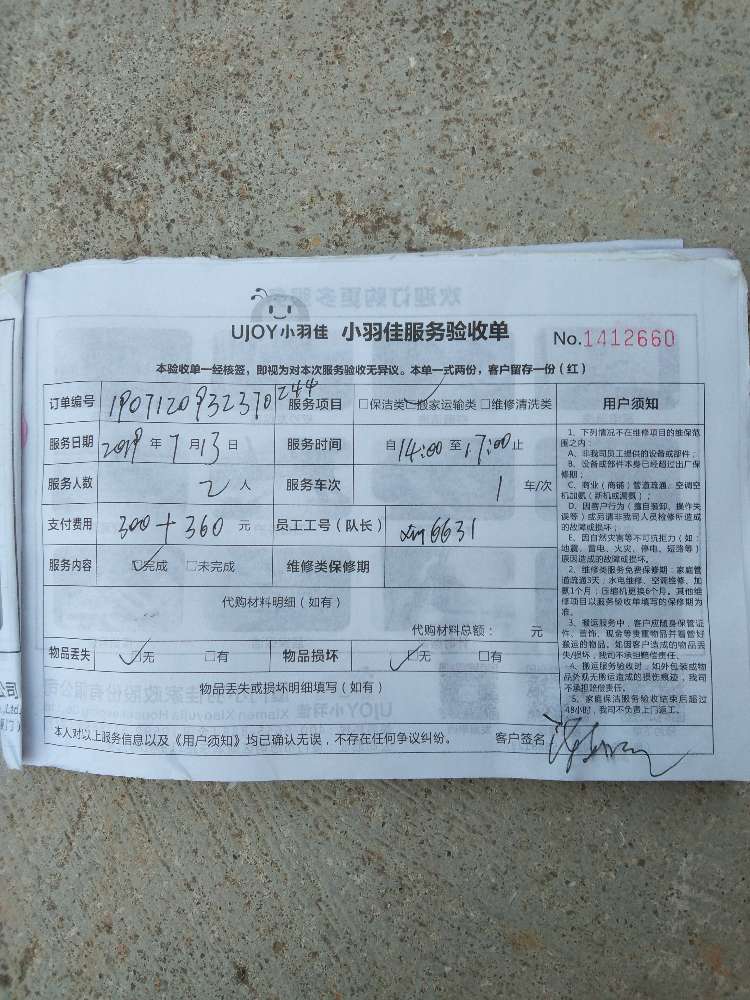 UJOY小羽佳 小羽佳服务验收单 No.1412660
本验收单一经核签，即视为对本次服务验收无异议。本单一式两份，客户留存一份（红）
订单编号 1907120932370244 服务项目 □保洁类 □搬家运输类 □维修清洗类
服务日期 2019 年 7 月 13 日 服务时间 自 14:00 至 17:00 止
服务人数 2 人 服务车次 1 车/次
支付费用 300+360 元 员工工号（队长） 6631
服务内容 □完成 □未完成 维修类保修期
代购材料明细（如有）
代购材料总额： 元
物品丢失 □无 □有 物品损坏 □无 □有
物品丢失或损坏明细填写（如有）
本人对以上服务信息以及《用户须知》均已确认无误，不存在任何争议纠纷。 客户签名
用户须知
1、下列情况不在维修项目的维保范
围之内：
A、非我司员工提供的设备或部件；
B、设备或部件本身已经超过出厂保
修期；
C、商业（商铺）管道疏通、空调空
机加氟（新机或漏氟）；
D、因客户行为（擅自装卸、操作失
误等）或另请非我司人员检修所造成
的故障或损坏；
E、因自然灾害等不可抗拒力（如：
地震、雷电、火灾、停电、短路等）
原因造成的故障或损坏。
2、维修类服务免费保修期：家庭管
道疏通3天；水电维修、空调维修、加
氟1个月；压缩机更换6个月。其他维
修项目以服务验收单填写的保修期为
准。
3、搬运服务中，客户应随身保管证
件、首饰、现金等贵重物品并看管好
搬运的物品。如因客户造成的物品丢
失/损坏，我司不承担赔偿责任。
4、搬运服务验收时，如外包装或物
品外观无搬运造成的损伤痕迹，我司
不承担赔偿责任。
5、家庭保洁服务验收结束后超过
48小时，我司不负责上门返工。